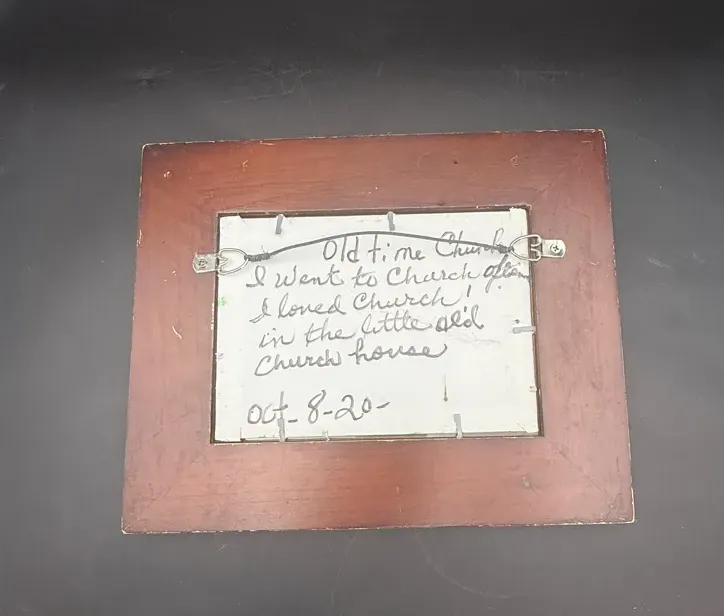 Old time Church
I went to Church often
I loved Church!
in the little old
Church house
Oct-8-20-